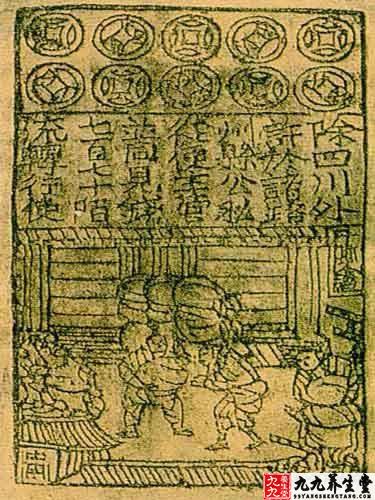 除四川外
許於諸路
州縣公私
從便主管
並同見錢
七百七十陌
流轉行使
九九养生堂
99YANGSHENGTANG.COM